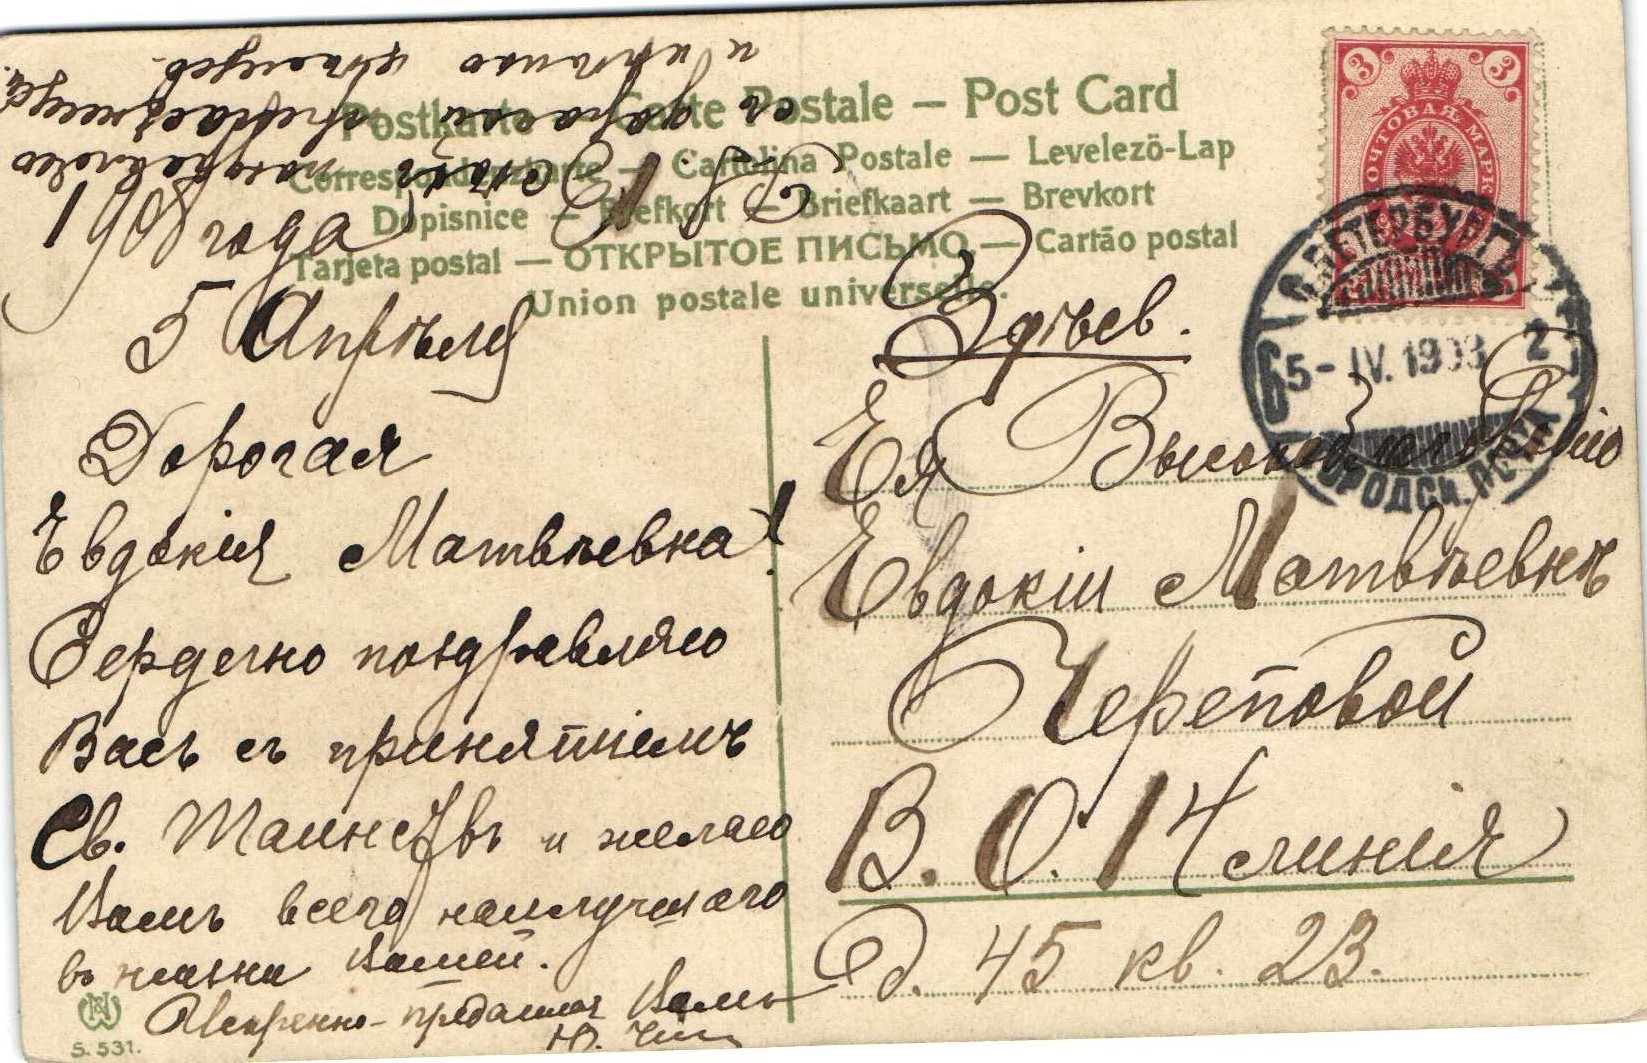 Postkarte — Carte Postale — Post Card
Correspondenzkarte — Cartolina Postale — Levelező-Lap
Dopisnice — Brefkort — Briefkaart — Brevkort
Tarjeta postal — ОТКРЫТОЕ ПИСЬМО — Cartão postal
Union postale universelle.
1908 года
5 Апрѣля
Дорогая
Евдокія Матвѣевна!
Сердечно поздравляю
Васъ съ принятіемъ
Св. Таинствъ и желаю
Вамъ всего наилучшаго
въ жизни Вашей.
Искренно-преданная Вамъ
Ю.
поздравляю
съ дорогой
и цѣлую
Здѣсь.
Ея Высокоблагородію
Евдокіи Матвѣевнѣ
Череповой
В. О. 14 линія
д. 45 кв. 23.
3 3
ПОЧТОВАЯ МАРКА
С.ПЕТЕРБУРГЪ
5-IV.1908 2
6
ГОРОДСК. ПОЧТА
S. 531.